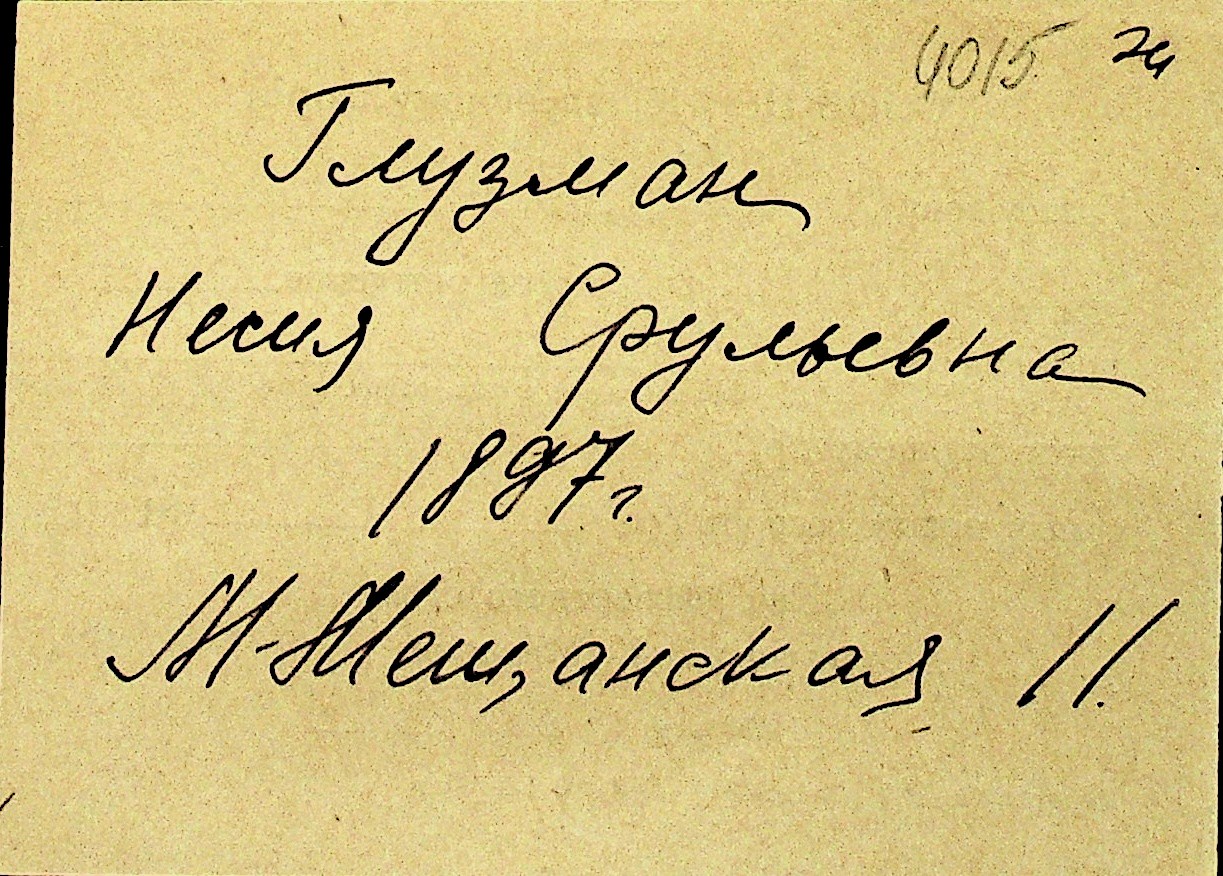 4015
Глузман
Несия Срульевна
1897г.
М-Мещанская 11.